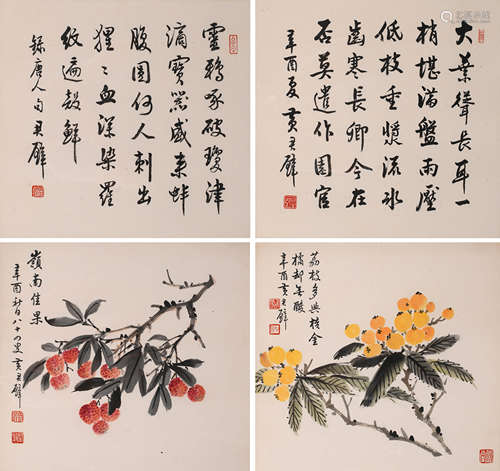 靈鵶啄破瓊津
滴寶器盛来蚌
腹圓何人刺出
猩〻血深染羅
紋遍殼鮮
錄唐人句君璧
大葉聳長耳一
梢堪滿盤雨壓
低枝重漿流冰
齒寒長卿今在
否莫遣作園官
辛酉夏黃君璧
嶺南佳果
辛酉秋日八十四叟黃君璧
荔枝多與核金
枝却無酸
辛酉黃君璧